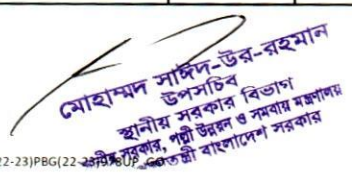 মোহাম্মদ সাঈদ-উর-রহমান
উপসচিব
স্থানীয় সরকার বিভাগ
স্থানীয় সরকার, পল্লী উন্নয়ন ও সমবায় মন্ত্রণালয়
গণপ্রজাতন্ত্রী বাংলাদেশ সরকার
22-23)PBG(22-23)978UP_GO